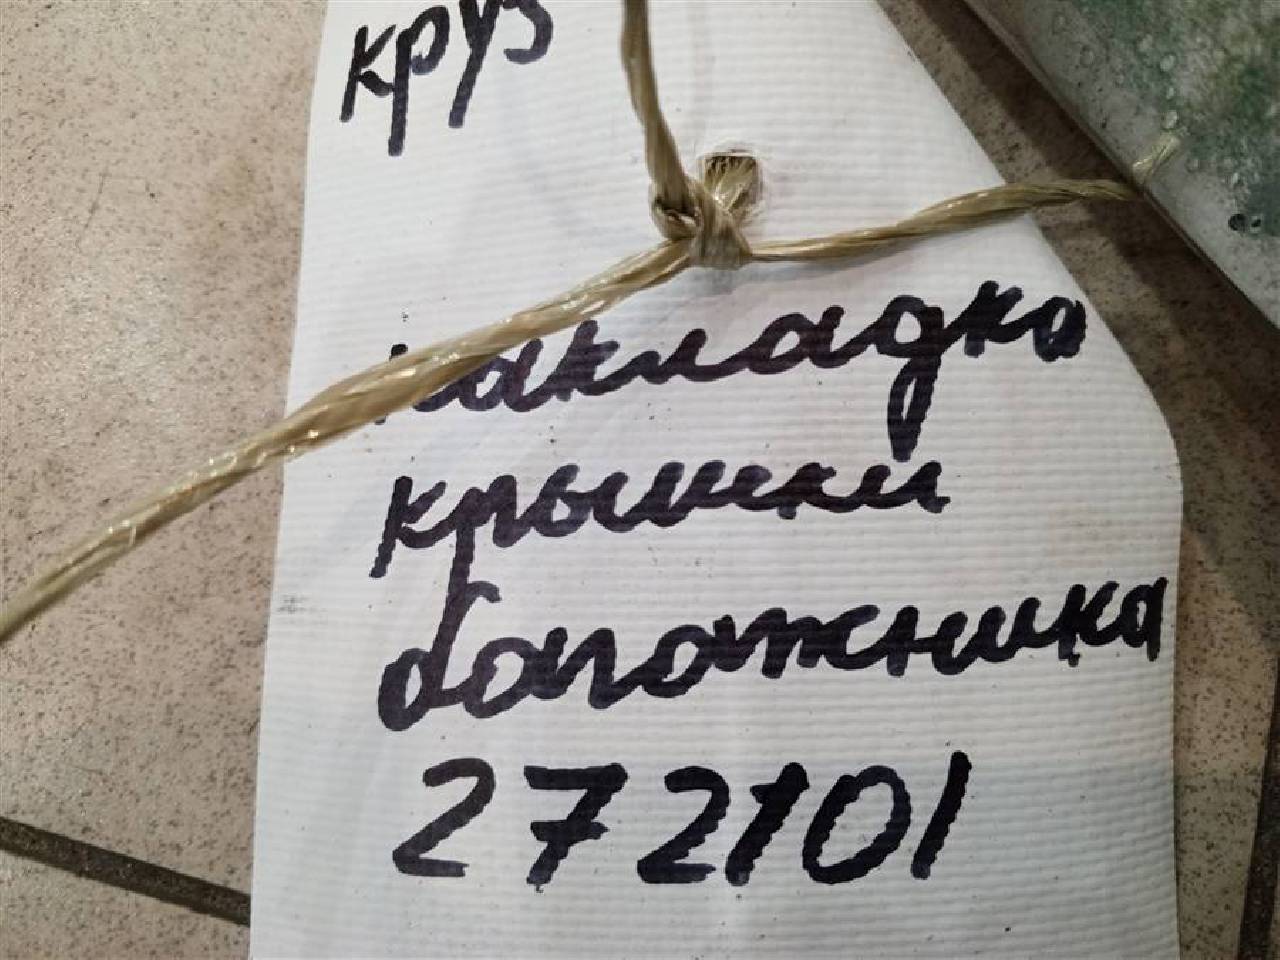 круз
накладка
крышки
багажника
272101